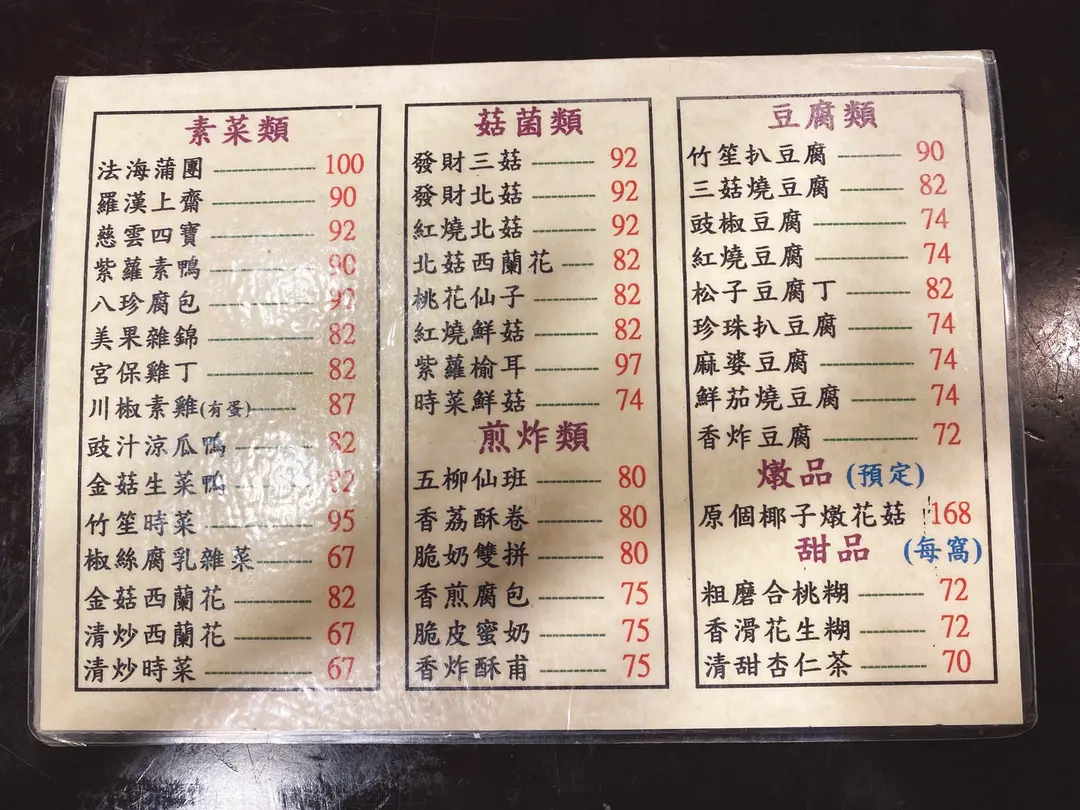 素菜類
法海蒲團 100
羅漢上齋 90
慈雲四寶 92
紫蘿素鴨 90
八珍腐包 97
美果雜錦 82
宮保雞丁 82
川椒素雞(有蛋) 87
豉汁涼瓜鴨 82
金菇生菜鴨 82
竹笙時菜 95
椒絲腐乳雜菜 67
金菇西蘭花 82
清炒西蘭花 67
清炒時菜 67
菇菌類
發財三菇 92
發財北菇 92
紅燒北菇 92
北菇西蘭花 82
桃花仙子 82
紅燒鮮菇 82
紫蘿榆耳 97
時菜鮮菇 74
煎炸類
五柳仙班 80
香荔酥卷 80
脆奶雙拼 80
香煎腐包 75
脆皮蜜奶 75
香炸酥甫 75
豆腐類
竹笙扒豆腐 90
三菇燒豆腐 82
豉椒豆腐 74
紅燒豆腐 74
松子豆腐丁 82
珍珠扒豆腐 74
麻婆豆腐 74
鮮茄燒豆腐 74
香炸豆腐 72
燉品 (預定)
原個椰子燉花菇 168
甜品 (每窩)
粗磨合桃糊 72
香滑花生糊 72
清甜杏仁茶 70